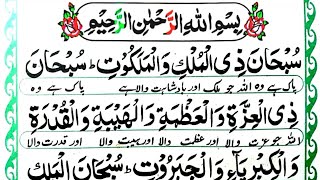 بِسْمِ اللهِ الرَّحْمٰنِ الرَّحِيْمِ
سُبْحَانَ ذِي الْمُلْكِ وَالْمَلَكُوْتِ ؕ سُبْحَانَ
پاک ہے وہ اللہ جو ملک اور بادشاہت والا ہے پاک ہے وہ
ذِي الْعِزَّةِ وَالْعَظْمَةِ وَالْهَيْبَةِ وَالْقُدْرَةِ
اللہ جو عزت والا اور عظمت والا اور ہیبت والا اور قدرت والا
وَالْكِبْرِيَآءِ وَالْجَبَرُوْتِ ؕ سُبْحَانَ الْمَلِكِ